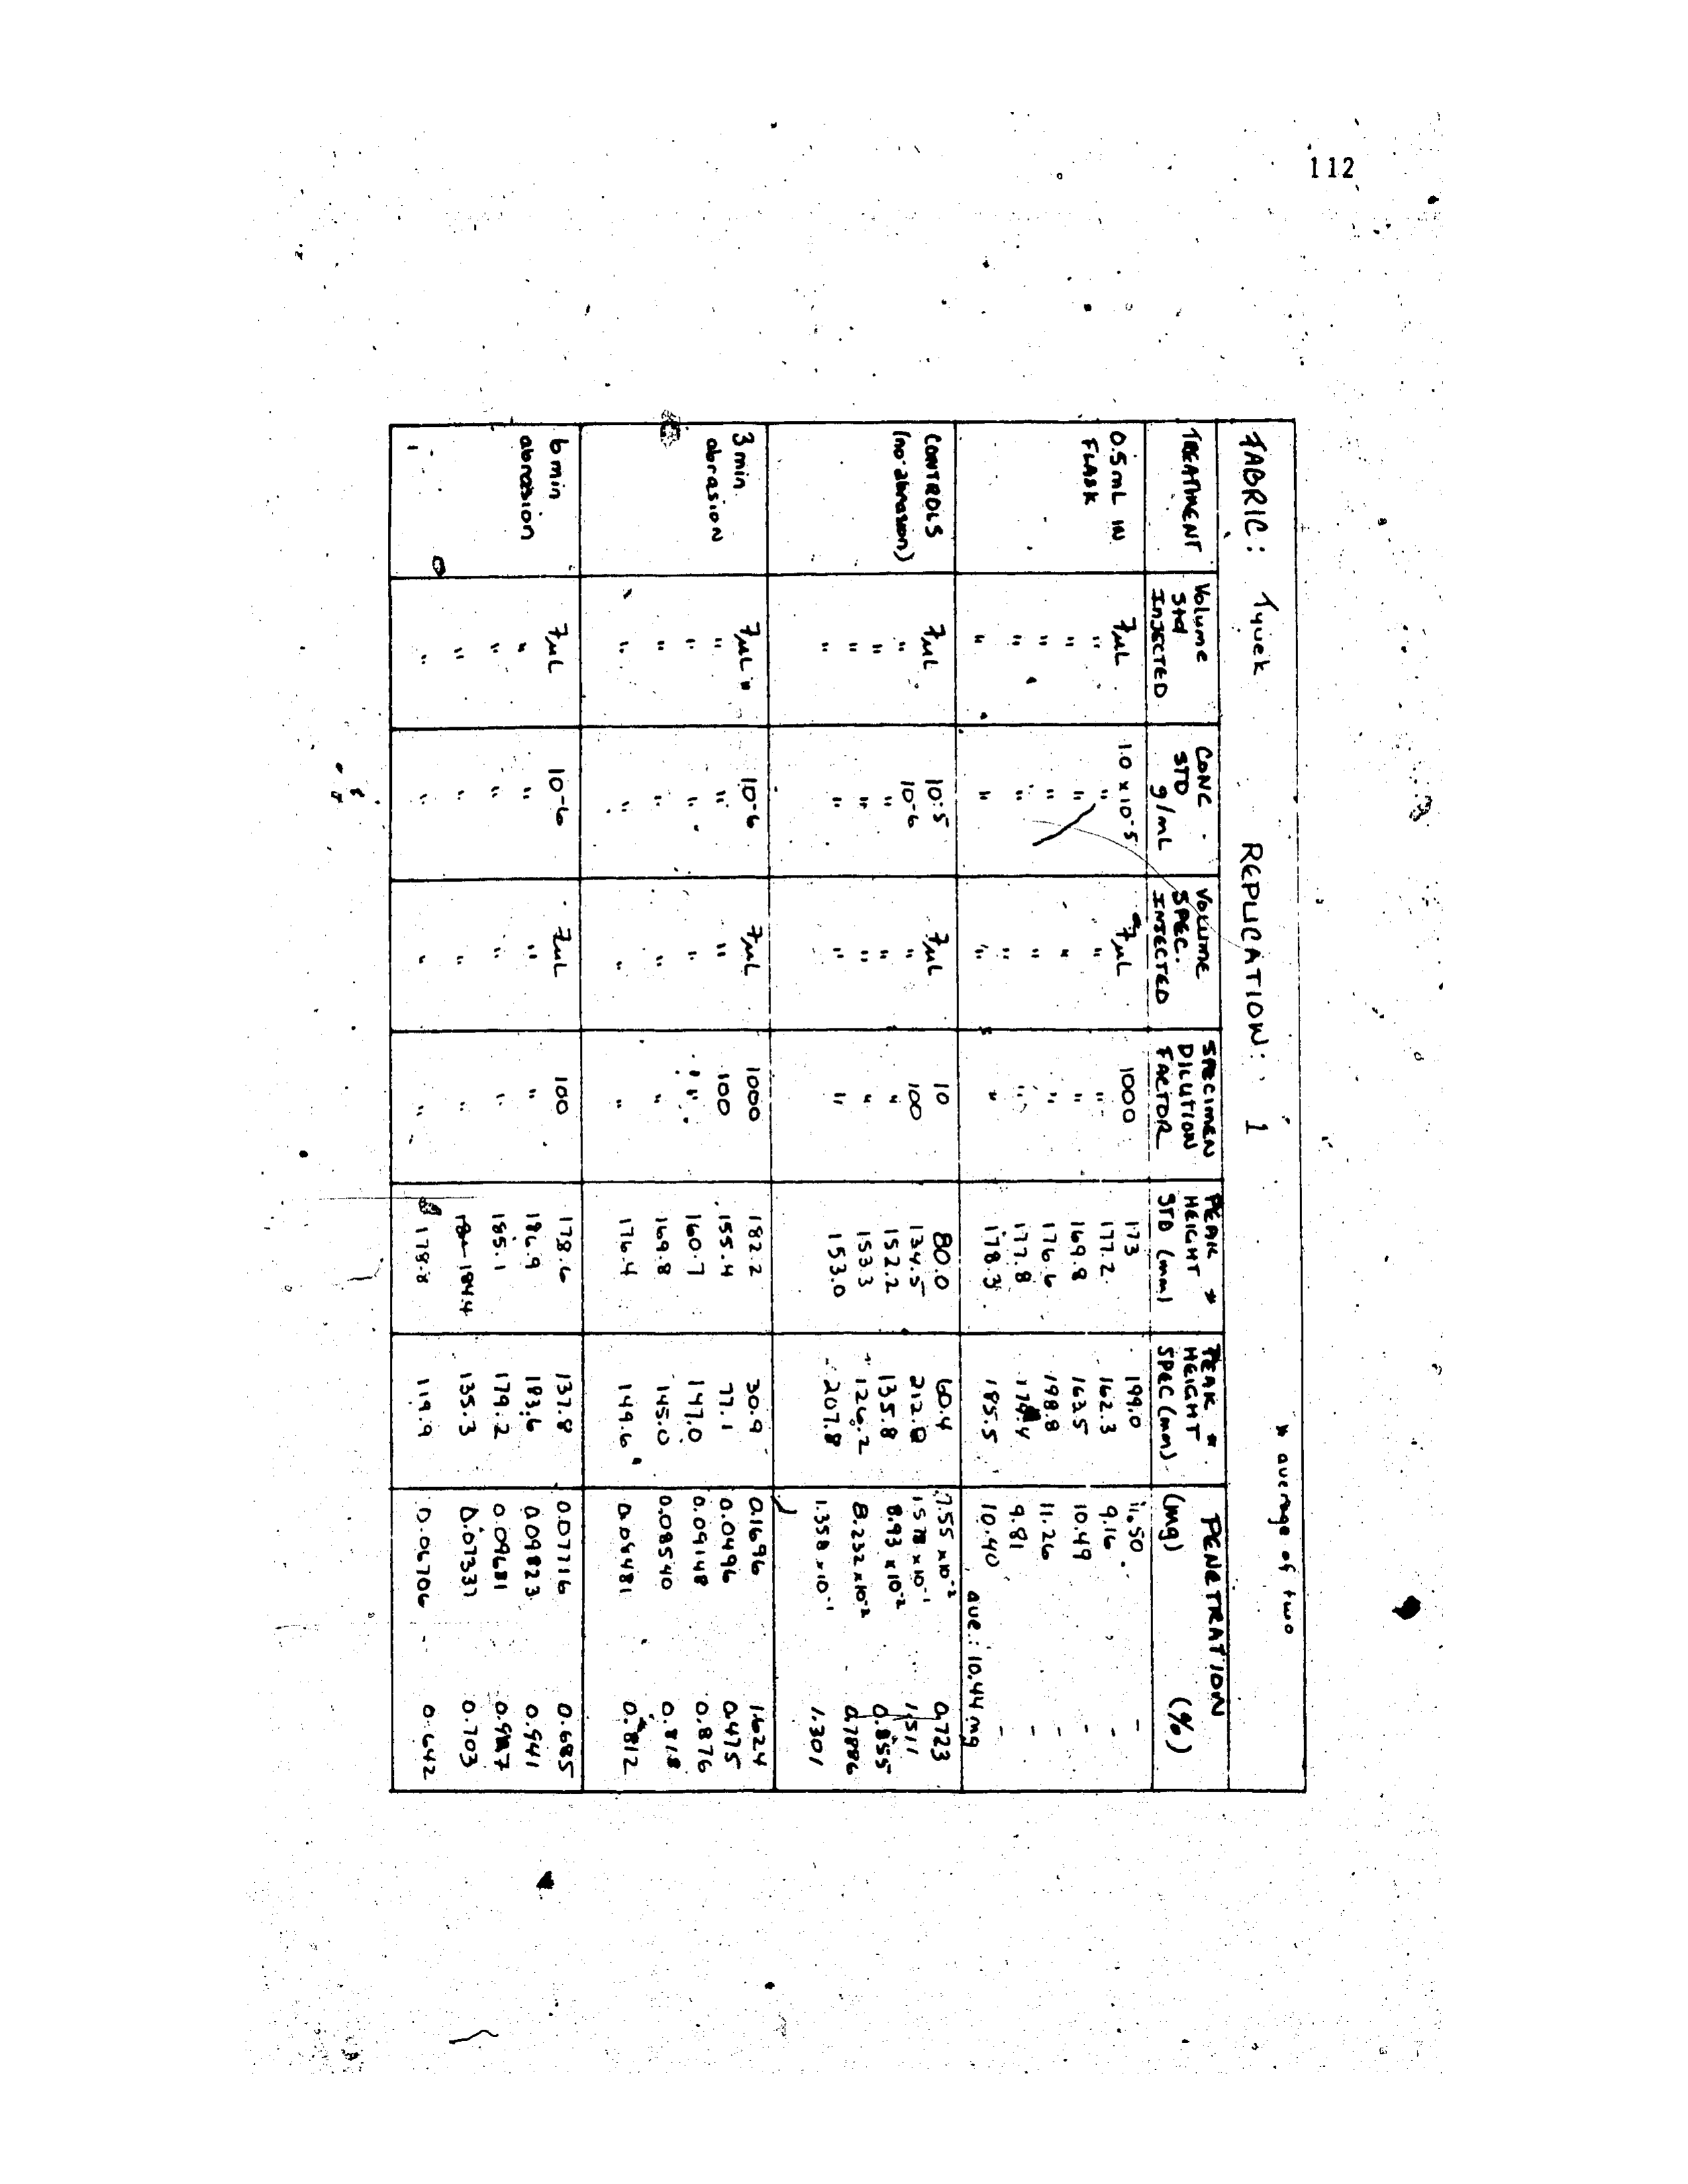 112
FABRIC: Tyvek REPLICATION: 1 * average of two
TREATMENT Volume Std INJECTED CONC STD g/mL VOLUME SPEC. INJECTED SPECIMEN DILUTION FACTOR PEAK * HEIGHT STD (mm) PEAK * HEIGHT SPEC (mm) PENETRATION (mg) (%)
0.5mL IN FLASK 7µL 1.0 x 10-5 7µL 1000 173 199.0 11.50 -
" " " " 177.2 162.3 9.16 -
" " " " 169.8 163.5 10.49 -
" " " " 176.6 198.8 11.26 -
" " " " 177.8 9.81 -
" " " " 178.3 185.5 10.40 ave: 10.44 mg
CONTROLS (no abrasion) 7µL 10-5 7µL 10 80.0 60.4 7.55 x10-2 0.723
" 10-6 " 100 134.5 212.0 1.578 x10-1 1.511
" " " " 152.2 135.8 8.93 x10-2 0.855
" " " " 153.3 126.2 8.232 x10-2 0.7886
" " " " 153.0 207.8 1.358 x10-1 1.301
3 min abrasion 7µL 10-6 7µL 1000 182.2 30.9 0.1696 1.624
" " " 100 155.4 77.1 0.0496 0.475
" " " " 160.7 147.0 0.09148 0.876
" " " " 169.8 145.0 0.08540 0.818
" " " " 176.4 149.6 0.08481 0.812
6 min abrasion 7µL 10-6 7µL 100 178.6 137.8 0.07716 0.685
" " " " 186.9 183.6 0.09823 0.941
" " " " 185.1 179.2 0.09681
" " " " 184.4 135.3 0.07337 0.703
" " " " 178.8 119.9 0.06706 0.642